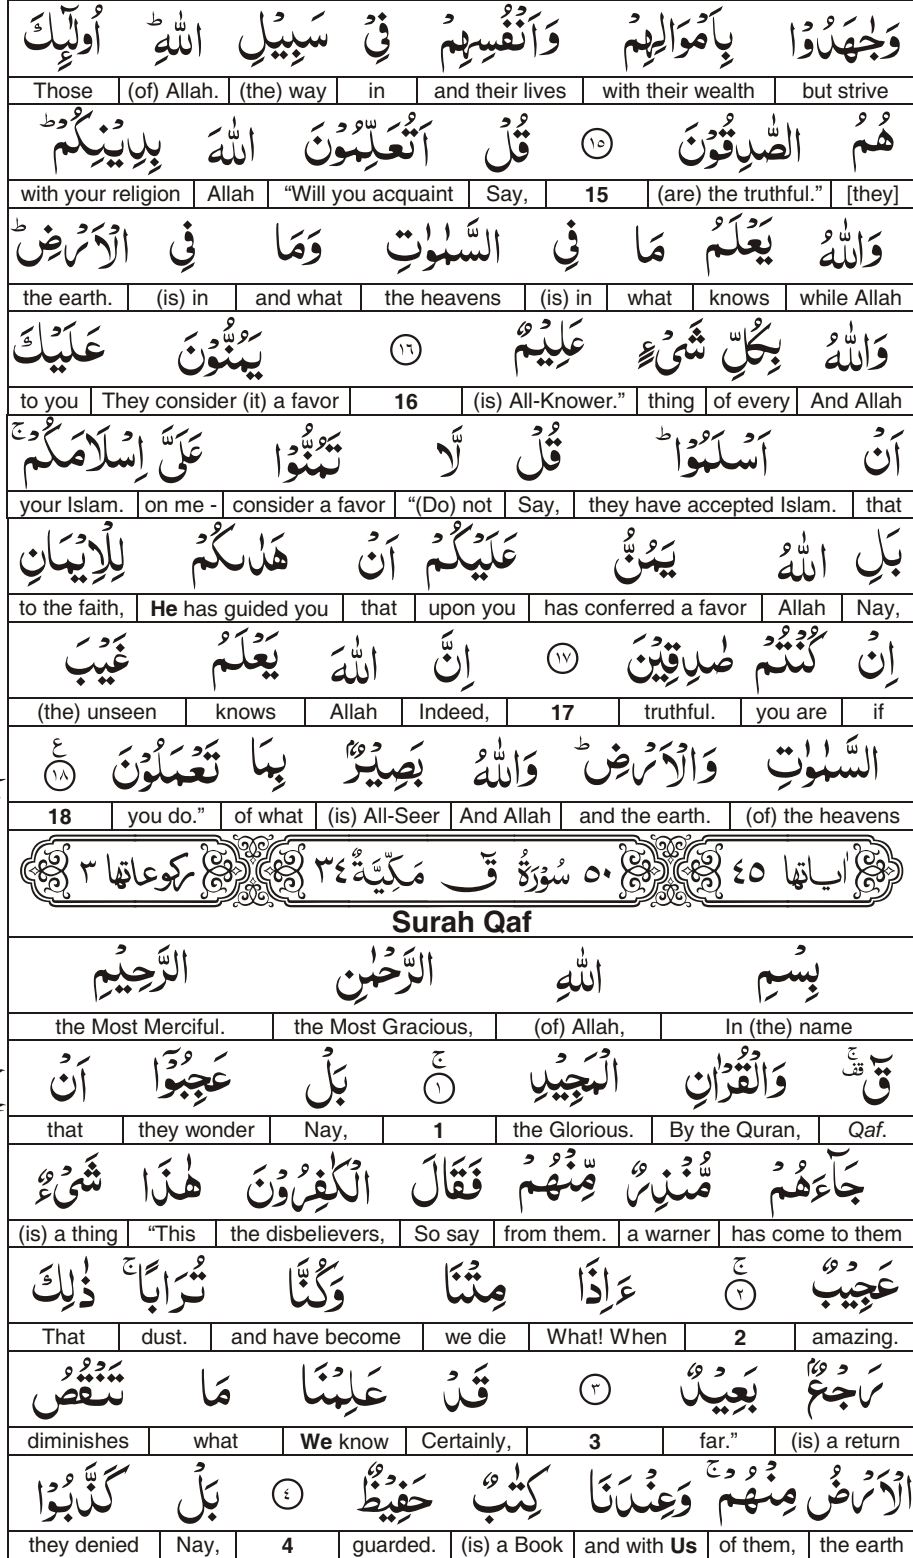 وَجٰهَدُوۡا بِاَمۡوَالِهِمۡ وَاَنۡفُسِهِمۡ فِىۡ سَبِيۡلِ اللّٰهِ‌ؕ اُولٰٓٮِٕكَ
but strive | with their wealth | and their lives | in | (the) way | (of) Allah. | Those
هُمُ الصّٰدِقُوۡنَ ١٥ قُلۡ اَ تُعَلِّمُوۡنَ اللّٰهَ بِدِيۡنِكُمۡؕ
[they] | (are) the truthful.” | 15 | Say, | “Will you acquaint | Allah | with your religion
وَاللّٰهُ يَعۡلَمُ مَا فِى السَّمٰوٰتِ وَمَا فِى الۡاَرۡضِ‌ؕ
while Allah | knows | what | (is) in | the heavens | and what | (is) in | the earth.
وَاللّٰهُ بِكُلِّ شَىۡءٍ عَلِيۡمٌ ١٦ يَمُنُّوۡنَ عَلَيۡكَ
And Allah | of every | thing | (is) All-Knower.” | 16 | They consider (it) a favor | to you
اَنۡ اَسۡلَمُوۡا‌ؕ قُلْ لَّا تَمُنُّوۡا عَلَىَّ اِسۡلَامَكُمۡ‌ۚ
that | they have accepted Islam. | Say, | “(Do) not | consider a favor | on me - | your Islam.
بَلِ اللّٰهُ يَمُنُّ عَلَيۡكُمۡ اَنۡ هَدٰٮكُمۡ لِلۡاِيۡمَانِ
Nay, | Allah | has conferred a favor | upon you | that | He has guided you | to the faith,
اِنۡ كُنۡتُمۡ صٰدِقِيۡنَ ١٧ اِنَّ اللّٰهَ يَعۡلَمُ غَيۡبَ
if | you are | truthful. | 17 | Indeed, | Allah | knows | (the) unseen
السَّمٰوٰتِ وَالۡاَرۡضِ‌ؕ وَاللّٰهُ بَصِيۡرٌۢ بِمَا تَعۡمَلُوۡنَ ١٨ ع
(of) the heavens | and the earth. | And Allah | (is) All-Seer | of what | you do.” | 18
اٰياتها ٤٥ ٥٠ سُوۡرَةُ قٓ مَكِّيَّةٌ ٣٤ ركوعاتها ٣
Surah Qaf
بِسۡمِ اللّٰهِ الرَّحۡمٰنِ الرَّحِيۡمِ
In (the) name | (of) Allah, | the Most Gracious, | the Most Merciful.
قٓ ۚ قف وَالۡقُرۡاٰنِ الۡمَجِيۡدِ ۚ ١ بَلۡ عَجِبُوۡۤا اَنۡ
Qaf. | By the Quran, | the Glorious. | 1 | Nay, | they wonder | that
جَآءَهُمۡ مُّنۡذِرٌ مِّنۡهُمۡ فَقَالَ الۡكٰفِرُوۡنَ هٰذَا شَىۡءٌ
has come to them | a warner | from them. | So say | the disbelievers, | “This | (is) a thing
عَجِيۡبٌ‌ ۚ ٢ ءَاِذَا مِتۡنَا وَكُنَّا تُرَابًا ‌ۚ ذٰ لِكَ
amazing. | 2 | What! When | we die | and have become | dust. | That
رَجۡعٌۢ بَعِيۡدٌ ٣ قَدۡ عَلِمۡنَا مَا تَنۡقُصُ
(is) a return | far.” | 3 | Certainly, | We know | what | diminishes
الۡاَرۡضُ مِنۡهُمۡ‌ۚ وَعِنۡدَنَا كِتٰبٌ حَفِيۡظٌ ٤ بَلۡ كَذَّبُوۡا
the earth | of them, | and with Us | (is) a Book | guarded. | 4 | Nay, | they denied